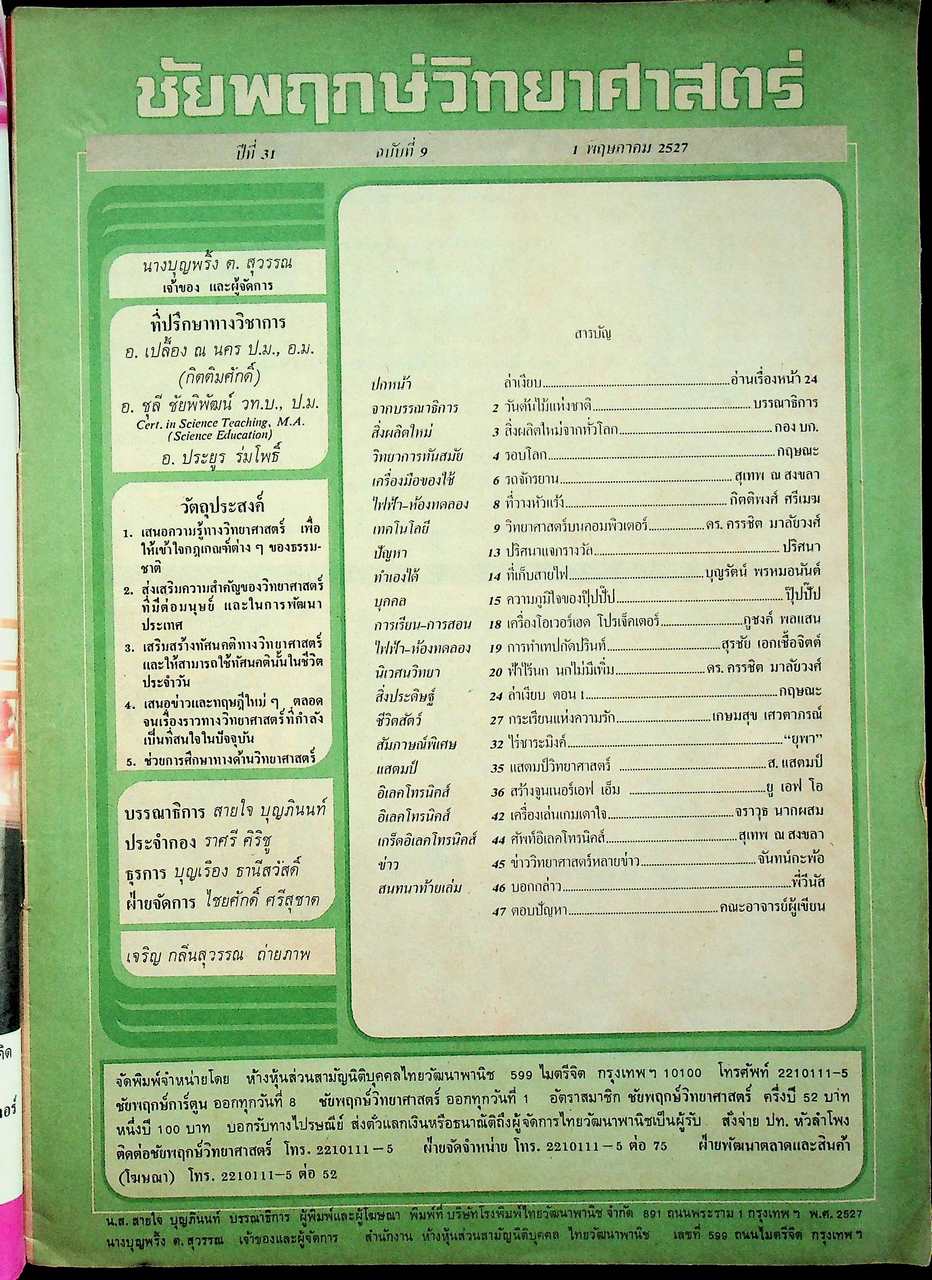 ชัยพฤกษ์วิทยาศาสตร์
ปีที่ 31 ฉบับที่ 9 1 พฤษภาคม 2527
นางบุญพริ้ง ต. สุวรรณ
เจ้าของ และผู้จัดการ
ที่ปรึกษาทางวิชาการ
อ. เปลื้อง ณ นคร ป.ม., อ.ม.
(กิตติมศักดิ์)
อ. ชุลี ชัยพิพัฒน์ วท.บ., ป.ม.
Cert. in Science Teaching, M.A.
(Science Education)
อ. ประยูร ร่มโพธิ์
วัตถุประสงค์
1. เสนอความรู้ทางวิทยาศาสตร์ เพื่อ
ให้เข้าใจกฎเกณฑ์ต่าง ๆ ของธรรม-
ชาติ
2. ส่งเสริมความสำคัญของวิทยาศาสตร์
ที่มีต่อมนุษย์ และในการพัฒนา
ประเทศ
3. เสริมสร้างทัศนคติทางวิทยาศาสตร์
และให้สามารถใช้ทัศนคตินั้นในชีวิต
ประจำวัน
4. เสนอข่าวและทฤษฎีใหม่ ๆ ตลอด
จนเรื่องราวทางวิทยาศาสตร์ที่กำลัง
เป็นที่สนใจในปัจจุบัน
5. ช่วยการศึกษาทางด้านวิทยาศาสตร์
บรรณาธิการ สายใจ บุญภินนท์
ประจำกอง ราศรี คิริชู
ธุรการ บุญเรือง ธานีสวัสดิ์
ฝ่ายจัดการ ไชยศักดิ์ ศรีสุชาต
เจริญ กลิ่นสุวรรณ ถ่ายภาพ
สารบัญ
ปกหน้า ล่าเงียบ อ่านเรื่องหน้า 24
จากบรรณาธิการ 2 วันต้นไม้แห่งชาติ บรรณาธิการ
สิ่งผลิตใหม่ 3 สิ่งผลิตใหม่จากทั่วโลก กอง บก.
วิทยาการทันสมัย 4 รอบโลก กฤษณะ
เครื่องมือของใช้ 6 รถจักรยาน สุเทพ ณ สงขลา
ไฟฟ้า-ห้องทดลอง 8 ที่วางหัวแร้ง กิตติพงศ์ ศรีเมฆ
เทคโนโลยี 9 วิทยาศาสตร์บนคอมพิวเตอร์ ดร. ครรชิต มาลัยวงศ์
ปัญหา 13 ปริศนาแจกรางวัล ปริศนา
ทำเองได้ 14 ที่เก็บสายไฟ บุญรัตน์ พรหมอนันต์
บุคคล 15 ความภูมิใจของปุ๊ปปั๊ป ปุ๊ปปั๊ป
การเรียน-การสอน 18 เครื่องโอเวอร์เฮด โปรเจ็คเตอร์ ภูชงค์ พลแสน
ไฟฟ้า-ห้องทดลอง 19 การทำเทปกัดปรินท์ สุรชัย เอกเชื้อจิตต์
นิเวศนวิทยา 20 ฟ้าไร้นก นกไม่มีเพิ่ม ดร. ครรชิต มาลัยวงศ์
สิ่งประดิษฐ์ 24 ล่าเงียบ ตอน 1 กฤษณะ
ชีวิตสัตว์ 27 กระเรียนแห่งความรัก เกษมสุข เศวตาภรณ์
สัมภาษณ์พิเศษ 32 ไร่ชาระมิงค์ “ยุพา”
แสตมป์ 35 แสตมป์วิทยาศาสตร์ ส. แสตมป์
อิเลคโทรนิคส์ 36 สร้างจูนเนอร์เอฟ เอ็ม ยู เอฟ โอ
อิเลคโทรนิคส์ 42 เครื่องเล่นเกมเดาใจ จราวุธ นาถผสม
เกร็ดอิเลคโทรนิคส์ 44 ศัพท์อิเลคโทรนิคส์ สุเทพ ณ สงขลา
ข่าว 45 ข่าววิทยาศาสตร์หลายข่าว จันทน์กะพ้อ
สนทนาท้ายเล่ม 46 บอกกล่าว พี่วีนัส
47 ตอบปัญหา คณะอาจารย์ผู้เขียน
จัดพิมพ์จำหน่ายโดย ห้างหุ้นส่วนสามัญนิติบุคคลไทยวัฒนาพานิช 599 ไมตรีจิต กรุงเทพฯ 10100 โทรศัพท์ 2210111-5
ชัยพฤกษ์การ์ตูน ออกทุกวันที่ 8 ชัยพฤกษ์วิทยาศาสตร์ ออกทุกวันที่ 1 อัตราสมาชิก ชัยพฤกษ์วิทยาศาสตร์ ครึ่งปี 52 บาท
หนึ่งปี 100 บาท บอกรับทางไปรษณีย์ ส่งตั๋วแลกเงินหรือธนาณัติถึงผู้จัดการไทยวัฒนาพานิชเป็นผู้รับ สั่งจ่าย ปท. หัวลำโพง
ติดต่อชัยพฤกษ์วิทยาศาสตร์ โทร. 2210111-5 ฝ่ายจัดจำหน่าย โทร. 2210111-5 ต่อ 75 ฝ่ายพัฒนาตลาดและสินค้า
(โฆษณา) โทร. 2210111-5 ต่อ 52
น.ส. สายใจ บุญภินนท์ บรรณาธิการ ผู้พิมพ์และผู้โฆษณา พิมพ์ที่ บริษัทโรงพิมพ์ไทยวัฒนาพานิช จำกัด 891 ถนนพระราม 1 กรุงเทพฯ พ.ศ. 2527
นางบุญพริ้ง ต. สุวรรณ เจ้าของและผู้จัดการ สำนักงาน ห้างหุ้นส่วนสามัญนิติบุคคล ไทยวัฒนาพานิช เลขที่ 599 ถนนไมตรีจิต กรุงเทพฯ